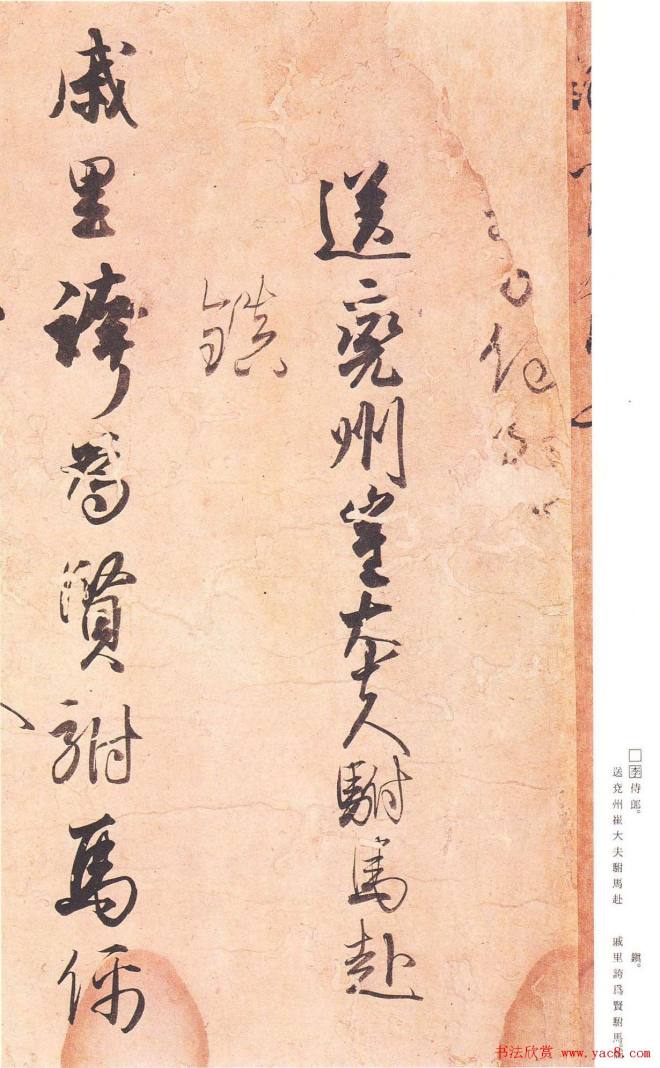 侍郎
送兖州崔大夫駙馬赴
鎮
戚里誇為賢駙馬儒
□李侍郎。
送兖州崔大夫駙馬赴
鎮。
戚里誇爲賢駙馬。
书法欣赏 www.yac8.com